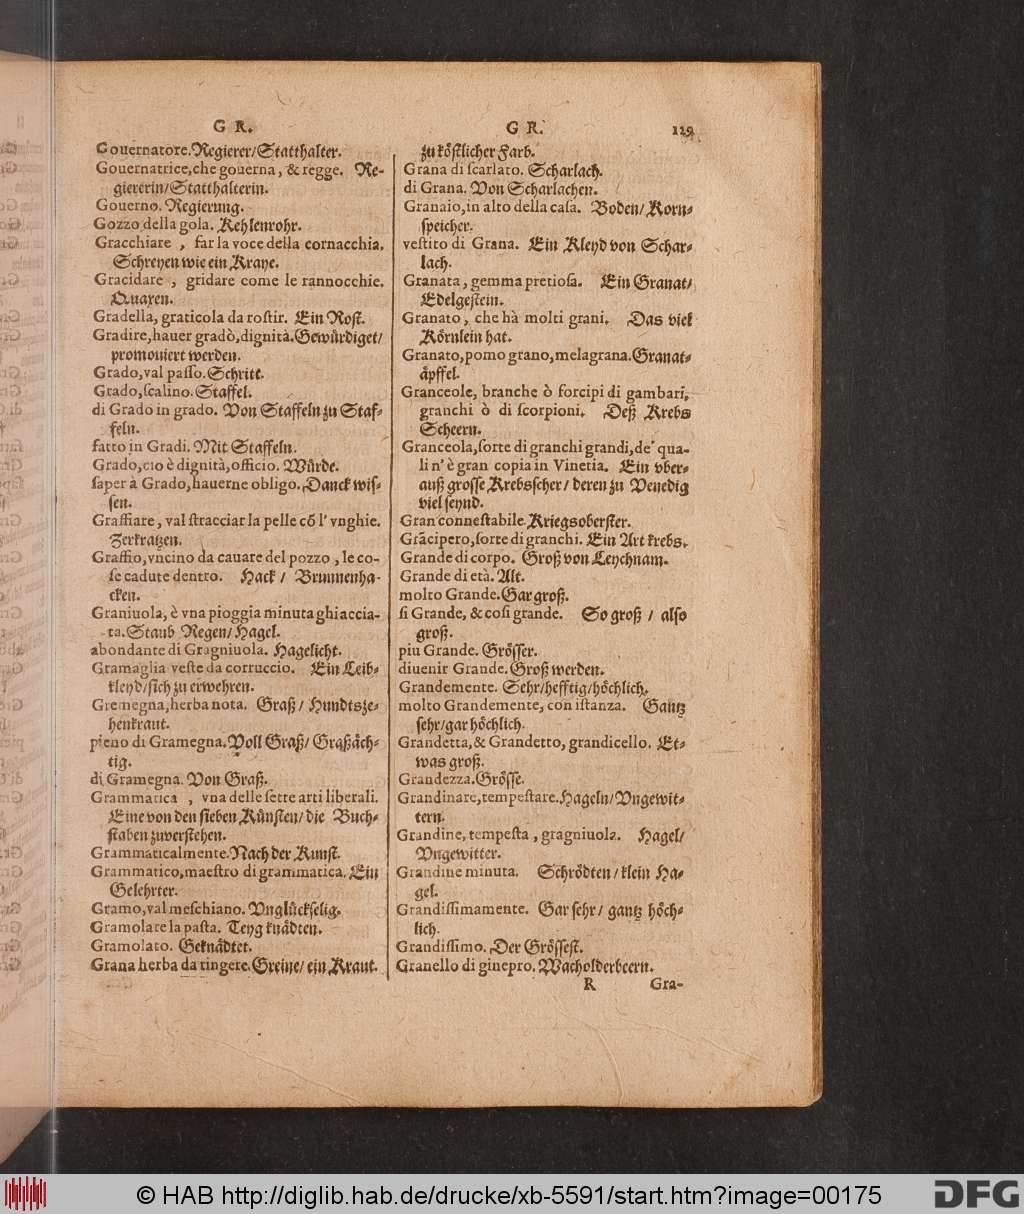 G R.
Gouernatore. Regierer/Statthalter.
Gouernatrice, che gouerna, & regge. Re-
giererin/Statthalterin.
Gouerno. Regierung.
Gozzo della gola. Kehlenrohr.
Gracchiare, far la voce della cornacchia.
Schreyen wie ein Kraye.
Gracidare, gridare come le rannocchie.
Quaxen.
Gradella, graticola da rostir. Ein Rost.
Gradire, hauer gradò, dignità. Gewürdiget/
promouiert werden.
Grado, val passo. Schritt.
Grado, scalino. Staffel.
di Grado in grado. Von Staffeln zu Staf-
feln.
fatto in Gradi. Mit Staffeln.
Grado, cio è dignità, officio. Würde.
saper à Grado, hauerne obligo. Danck wis-
sen.
Graffiare, val stracciar la pelle cō l' vnghie.
Zerkratzen.
Graffio, vncino da cauare del pozzo, le co-
se cadute dentro. Hack / Brunnenha-
cken.
Graniuola, è vna pioggia minuta ghiaccia-
ta. Staub Regen/Hagel.
abondante di Gragniuola. Hagelicht.
Gramaglia veste da corruccio. Ein Leib-
kleyd/sich zu erwehren.
Gremegna, herba nota. Graß / Hundtsze-
henkraut.
pieno di Gramegna. Voll Graß/Graßäch-
tig.
di Gramegna. Von Graß.
Grammatica, vna delle sette arti liberali.
Eine von den sieben Künsten/die Buch-
staben zuverstehen.
Grammaticalmente. Nach der Kunst.
Grammatico, maestro di grammatica. Ein
Gelehrter.
Gramo, val meschiano. Vnglückselig.
Gramolare la pasta. Teyg knädten.
Gramolato. Geknädtet.
Grana herba da tingere. Greine/ein Kraut.
G R. 129
zu köstlicher Farb.
Grana di scarlato. Scharlach.
di Grana. Von Scharlachen.
Granaio, in alto della casa. Boden/Korn-
speicher.
vestito di Grana. Ein Kleyd von Schar-
lach.
Granata, gemma pretiosa. Ein Granat/
Edelgestein.
Granato, che hà molti grani. Das viel
Körnlein hat.
Granato, pomo grano, melagrana. Granat-
äpffel.
Granceole, branche ò forcipi di gambari,
granchi ò di scorpioni. Deß Krebs
Scheern.
Granceola, sorte di granchi grandi, de' qua-
li n'è gran copia in Vinetia. Ein vber-
auß grosse Krebsscher/deren zu Venedig
viel seynd.
Gran connestabile. Kriegsoberster.
Grācipero, sorte di granchi. Ein Art krebs.
Grande di corpo. Groß von Leychnam.
Grande di età. Alt.
molto Grande. Gar groß.
si Grande, & cosi grande. So groß / also
groß.
piu Grande. Grösser.
diuenir Grande. Groß werden.
Grandemente. Sehr/hefftig/höchlich.
molto Grandemente, con istanza. Gantz
sehr/gar höchlich.
Grandetta, & Grandetto, grandicello. Et-
was groß.
Grandezza. Grösse.
Grandinare, tempestare. Hageln/Vngewit-
tern.
Grandine, tempesta, gragniuola. Hagel/
Vngewitter.
Grandine minuta. Schrödten/klein Ha-
gel.
Grandissimamente. Gar sehr/gantz höch-
lich.
Grandissimo. Der Grössest.
Granello di ginepro. Wacholderbeern.
R Gra-
© HAB http://diglib.hab.de/drucke/xb-5591/start.htm?image=00175
DFG